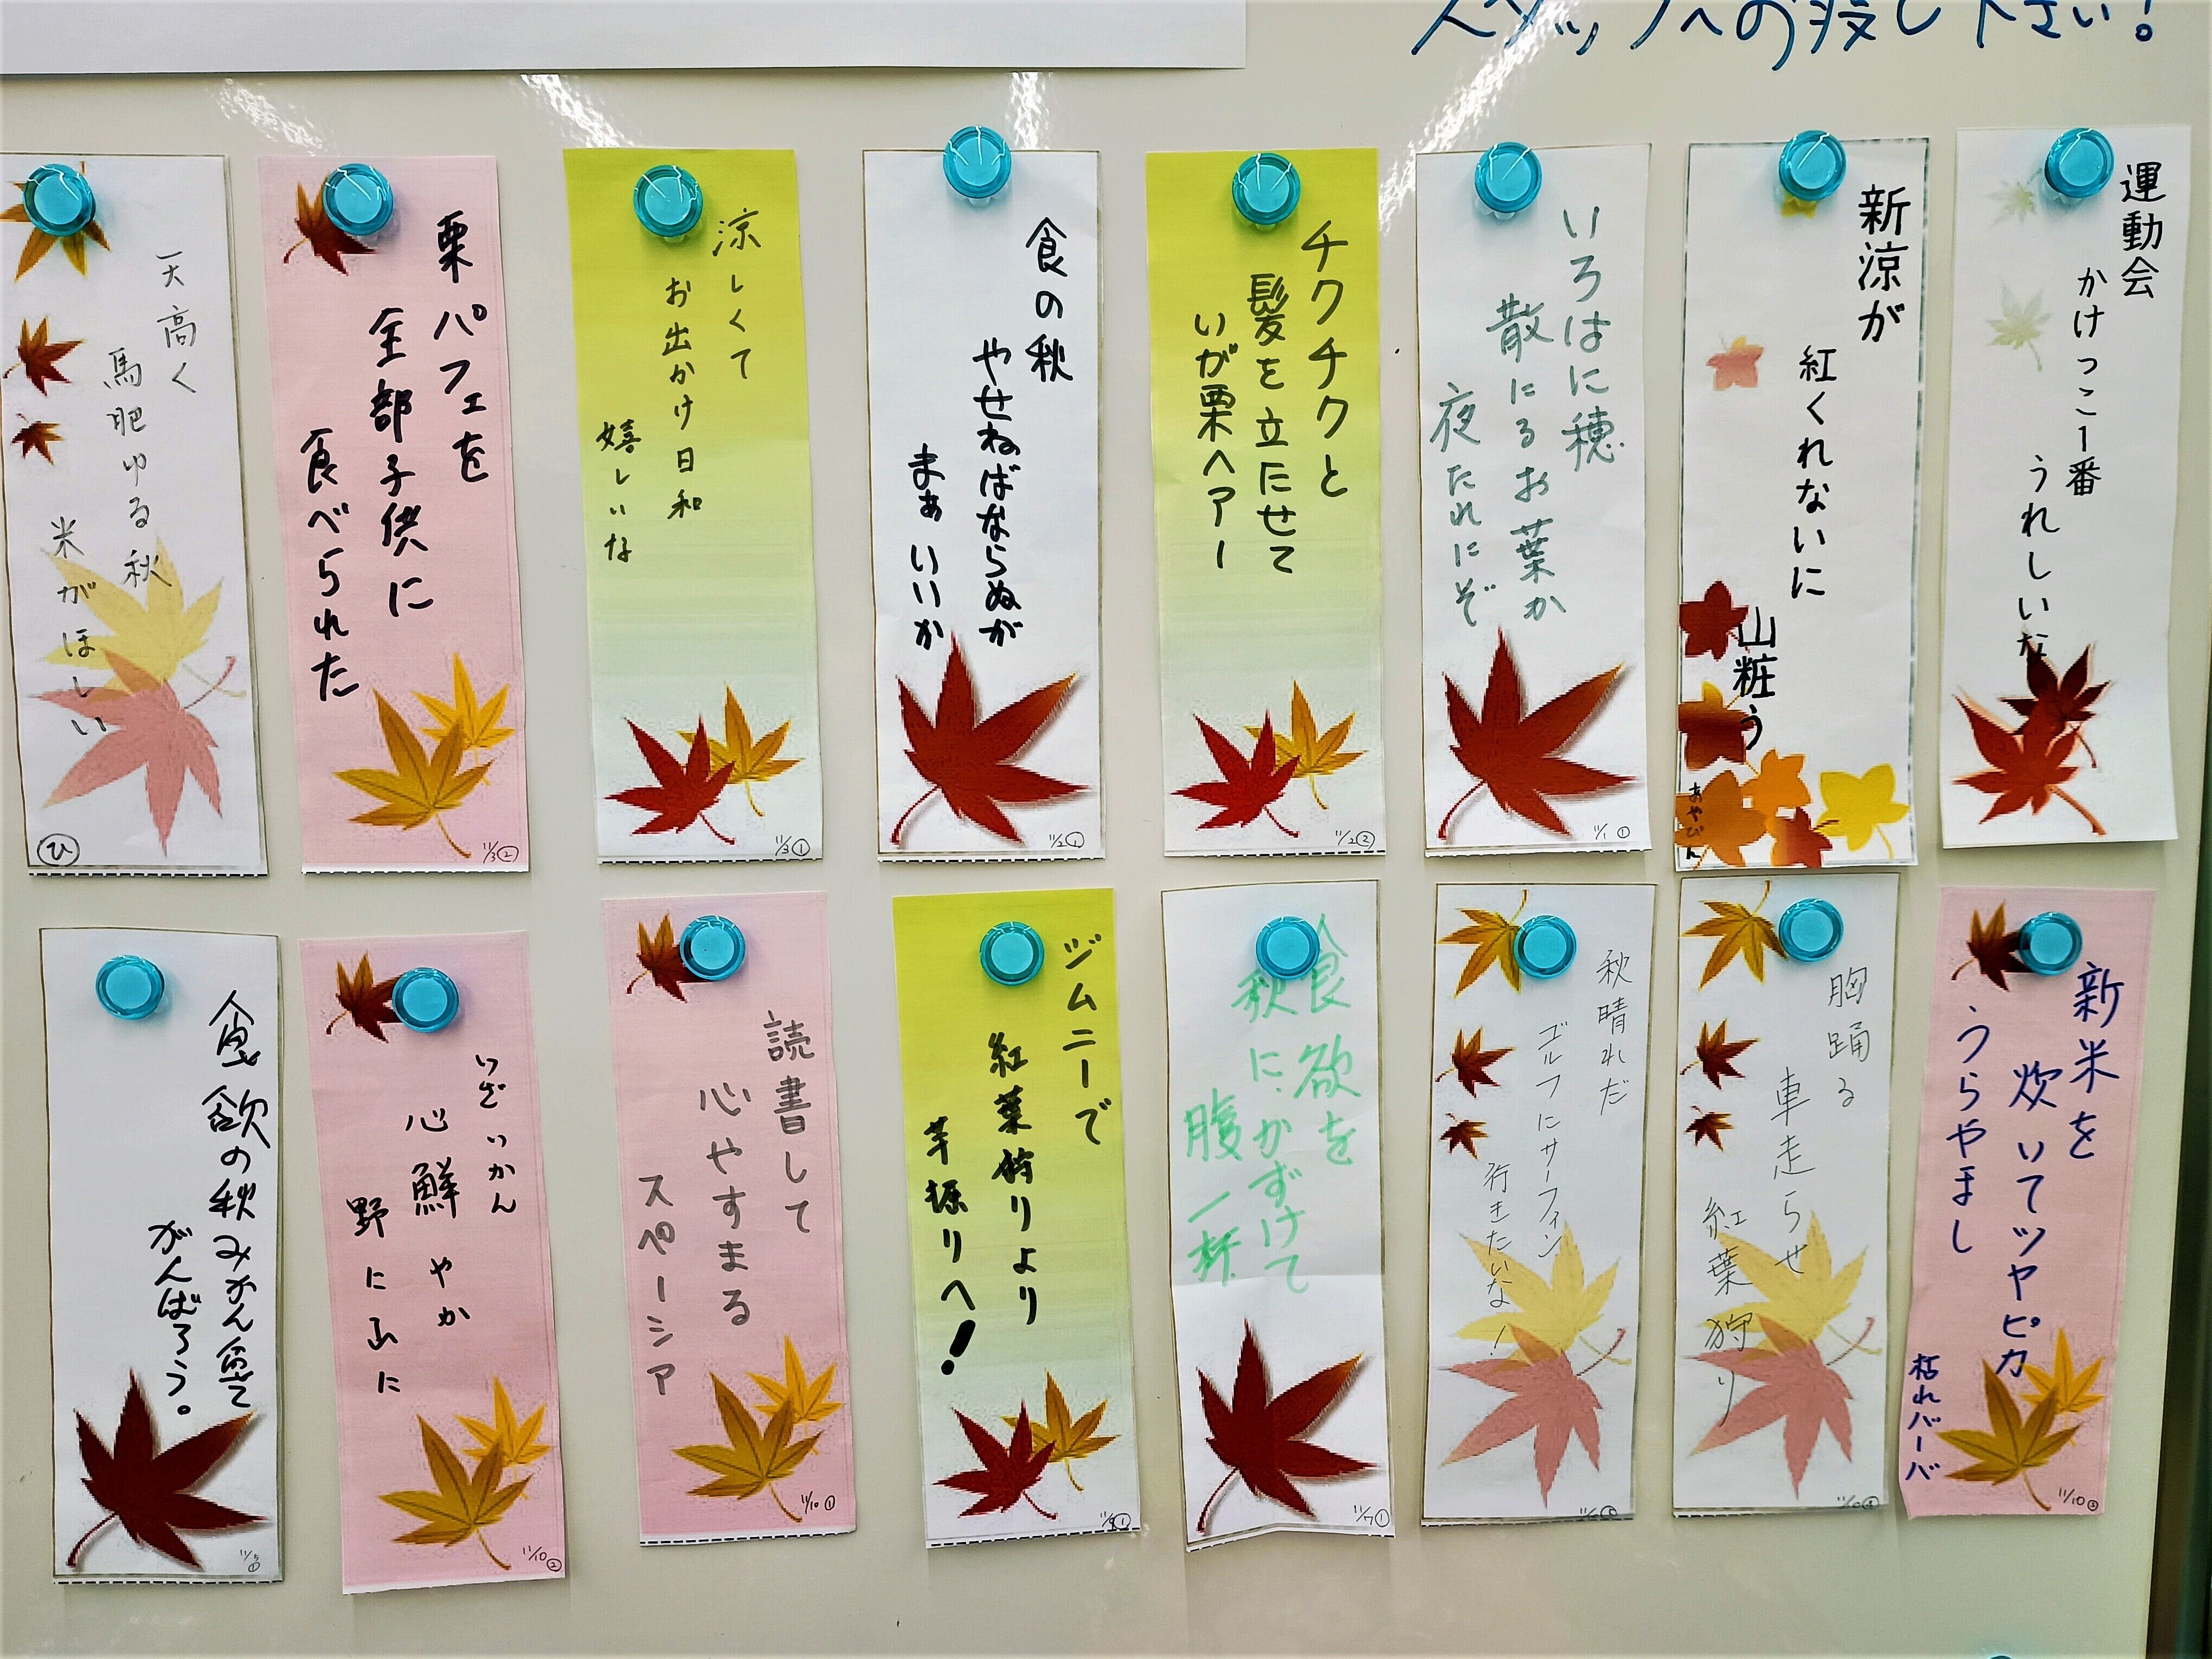 スタッフへお渡し下さい！
運動会
かけっこ一番
うれしいな
新涼が
紅くれないに
山粧う
あやびん
いろはに穂
散にるお葉か
夜たれにぞ
11/1①
チクチクと
髪を立たせて
いが栗ヘアー
11/2②
食の秋
やせねばならぬが
まぁいいか
11/2①
涼しくて
お出かけ日和
嬉しいな
11/3①
栗パフェを
全部子供に
食べられた
11/3②
天高く
馬肥ゆる秋
米がほしい
ひ
新米を
炊いてツヤピカ
うらやまし
枯れバーバ
11/10③
胸踊る
車走らせ
紅葉狩り
秋晴れだ
ゴルフにサーフィン
行きたいな！
食欲を
秋に、かずけて
腹一杯
11/7①
ジムニーで
紅葉狩りより
芋掘りへ！
読書して
心やすまる
スペーシア
11/10①
いざいかん
心鮮やか
野に山に
11/10②
食欲の秋みかん食て
がんばろう。
11/5①